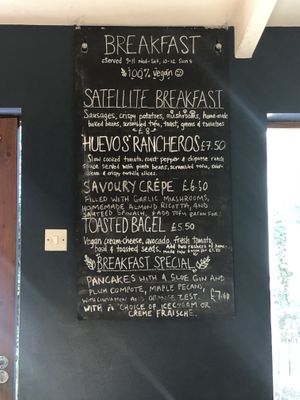 BREAKFAST
served 9-11 Wed-Sat, 10-12 Sun
100% vegan
SATELLITE BREAKFAST
Sausages, crispy potatoes, mushrooms, home-made
baked beans, scrambled tofu, toast, greens & tomatoes
£8
HUEVOS RANCHEROS £7.50
Slow cooked tomato, roast pepper & chipotle
sauce served with pinto beans, scrambled tofu,
cream & crispy tortilla slices.
SAVOURY CRÊPE £6.50
FILLED WITH GARLIC MUSHROOMS,
HOMEMADE ALMOND RICOTTA, AND
SAUTEED SPINACH. ADD TOFU BACON FOR
TOASTED BAGEL £5.50
Vegan cream cheese, avocado, fresh tomato,
toasted seeds. Add
BREAKFAST SPECIAL
PANCAKES WITH A SLOE GIN AND
PLUM COMPOTE, MAPLE PECANS,
WITH ORANGE ZEST £7.50
WITH A CHOICE OF ICECREAM OR
CRÈME FRAÎSCHE.